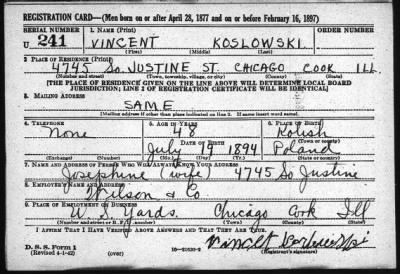 REGISTRATION CARD—(Men born on or after April 28, 1877 and on or before February 16, 1897)
SERIAL NUMBER 1. NAME (Print) ORDER NUMBER
U 241 VINCENT KOSLOWSKI
(First) (Middle) (Last)
2. PLACE OF RESIDENCE (Print)
4745 So. JUSTINE ST. CHICAGO COOK ILL
(Number and street) (Town, township, village, or city) (County) (State)
[THE PLACE OF RESIDENCE GIVEN ON THE LINE ABOVE WILL DETERMINE LOCAL BOARD
JURISDICTION; LINE 2 OF REGISTRATION CERTIFICATE WILL BE IDENTICAL]
3. MAILING ADDRESS
SAME
[Mailing address if other than place indicated on line 2. If same insert word same]
4. TELEPHONE 5. AGE IN YEARS 6. PLACE OF BIRTH
None 48 Kolish
DATE OF BIRTH (Town or county)
July 19 1894 Poland
(Exchange) (Number) (Mo.) (Day) (Yr.) (State or country)
7. NAME AND ADDRESS OF PERSON WHO WILL ALWAYS KNOW YOUR ADDRESS
Josephine (wife) 4745 So Justine
8. EMPLOYER'S NAME AND ADDRESS
Wilson & Co
9. PLACE OF EMPLOYMENT OR BUSINESS
U. S. Yards. Chicago Cook Ill
(Number and street or R. F. D. number) (Town) (County) (State)
I AFFIRM THAT I HAVE VERIFIED ABOVE ANSWERS AND THAT THEY ARE TRUE.
D. S. S. Form 1
(Revised 4-1-42) (over) 16—21630-2 (Registrant's signature)